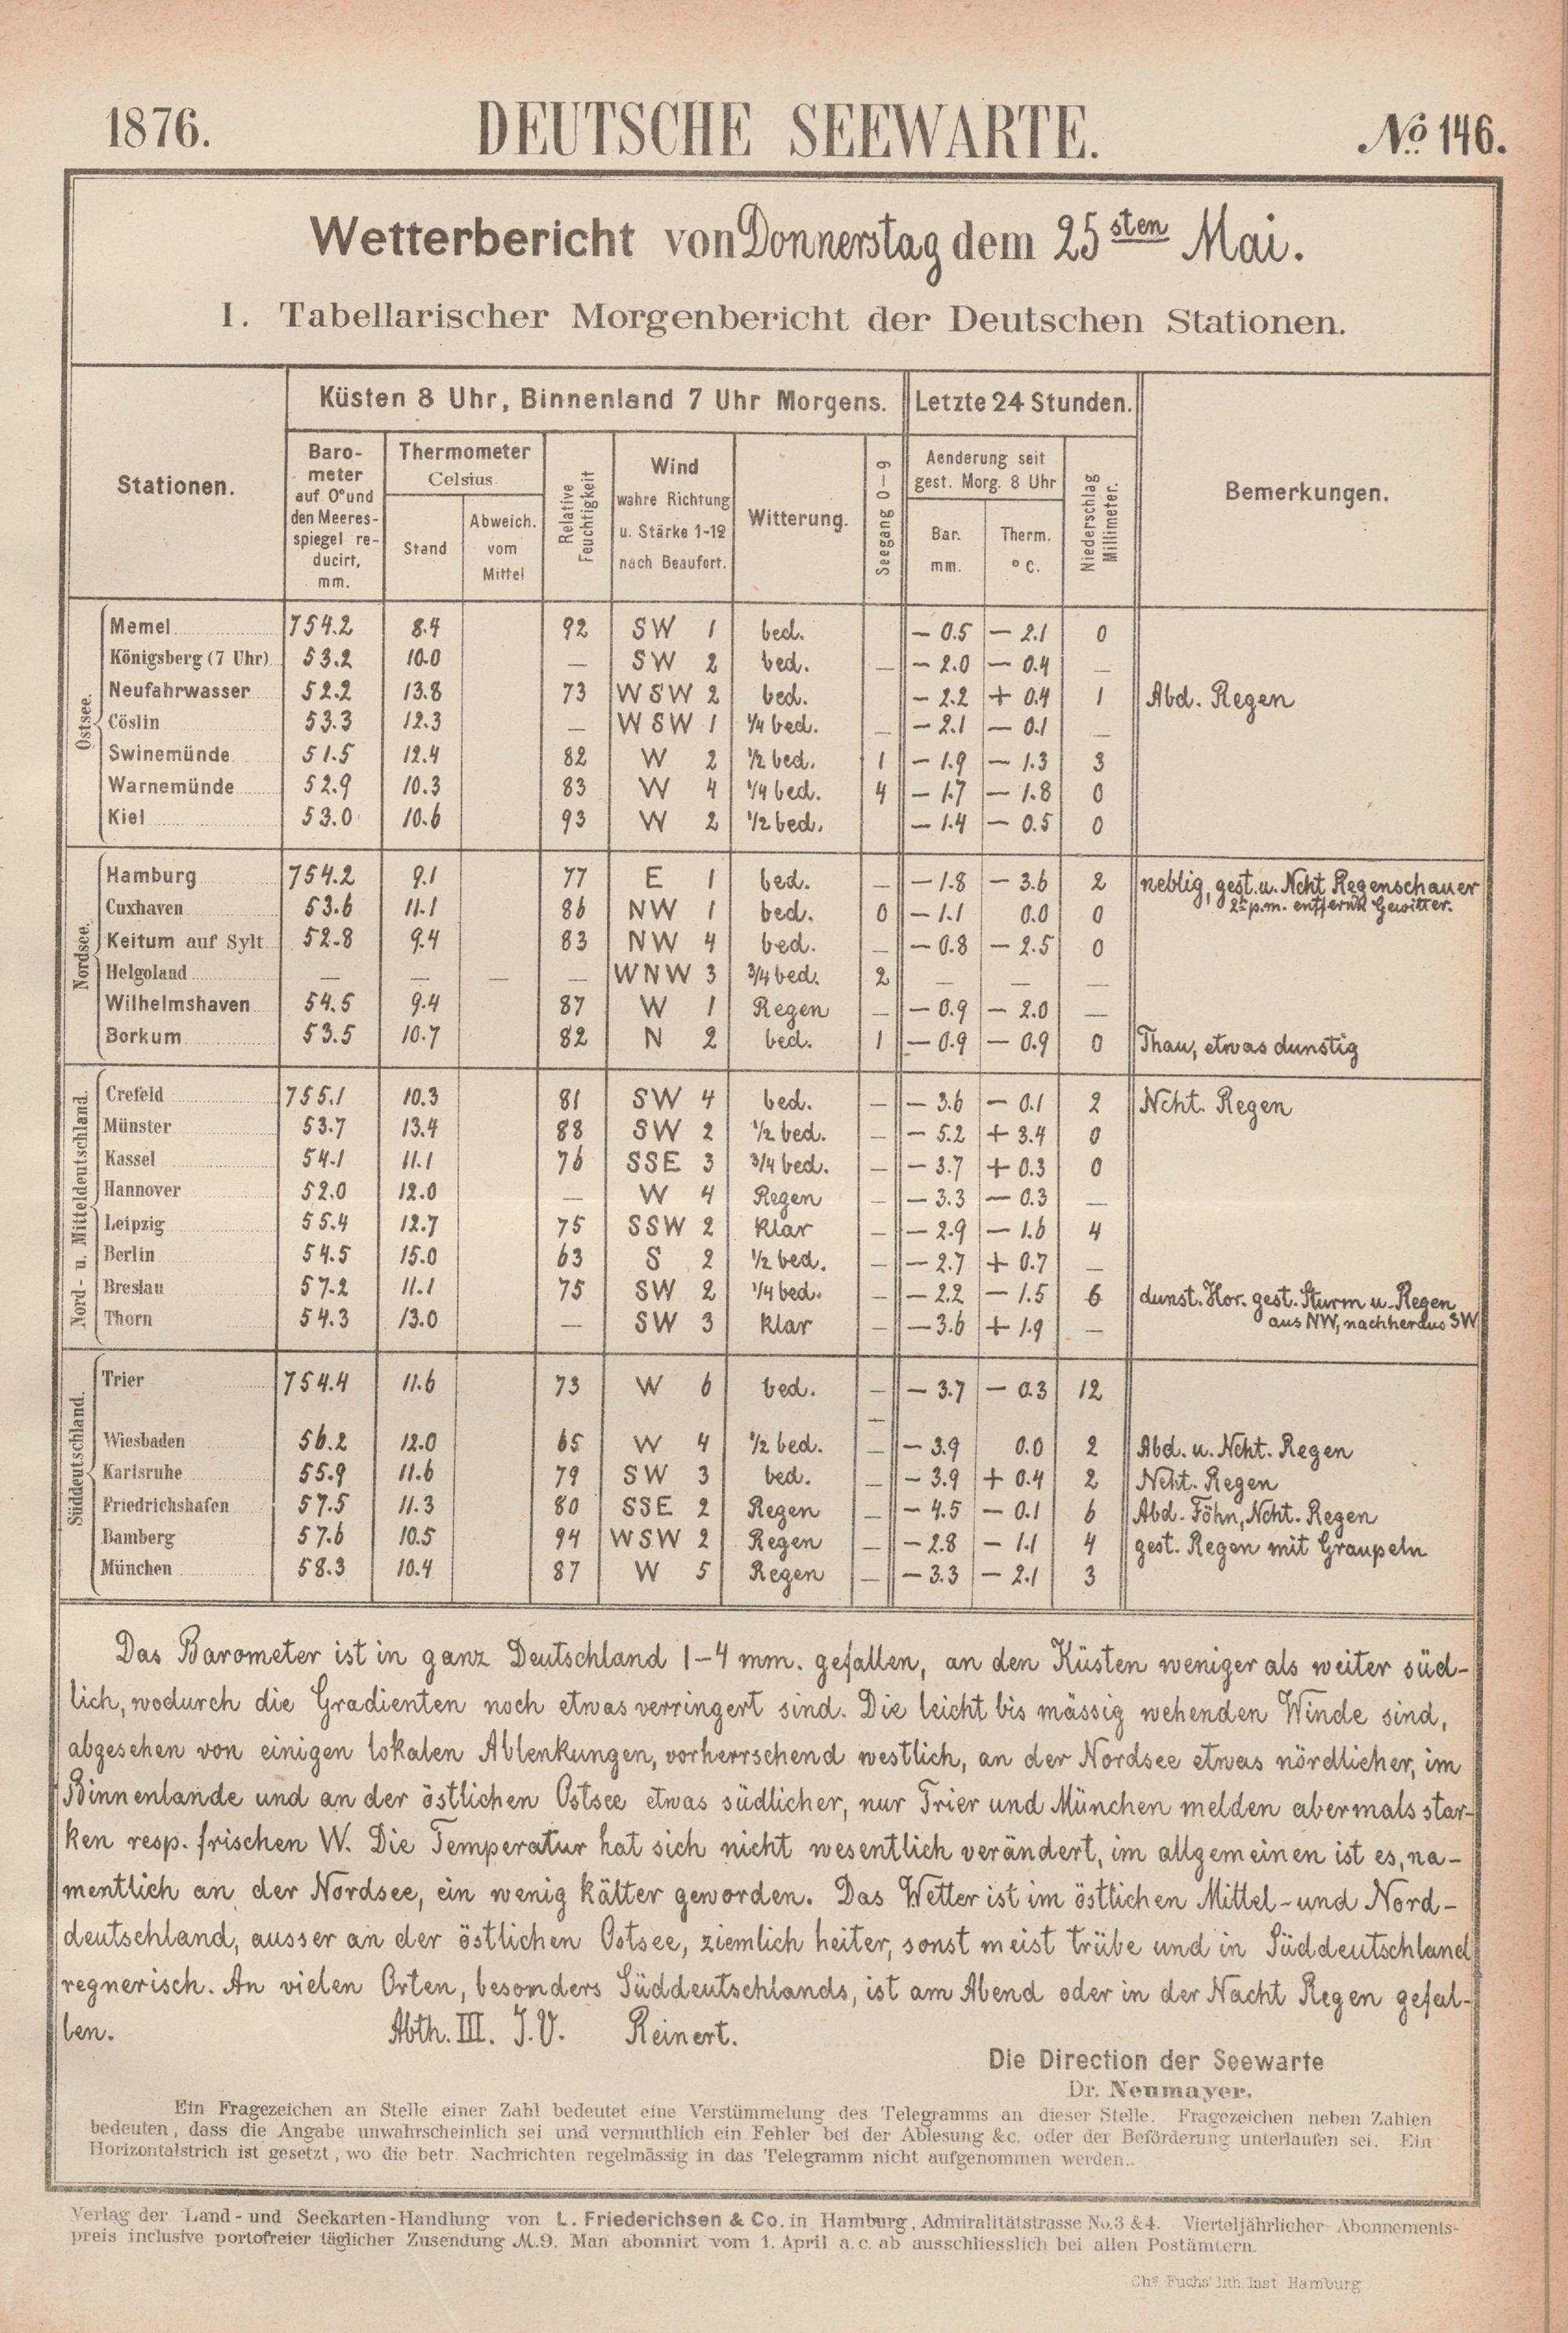 1876. DEUTSCHE SEEWARTE. No 146.
Wetterbericht von Donnerstag dem 25sten Mai.
I. Tabellarischer Morgenbericht der Deutschen Stationen.
Stationen.
Küsten 8 Uhr, Binnenland 7 Uhr Morgens.
Letzte 24 Stunden.
Bemerkungen.
Baro-
meter
auf 0° und
den Meeres-
spiegel re-
ducirt,
mm.
Thermometer
Celsius
Stand
Abweich.
vom
Mittel
Relative
Feuchtigkeit
Wind
wahre Richtung
u. Stärke 1-12
nach Beaufort.
Witterung.
Seegang 0-9
Aenderung seit
gest. Morg. 8 Uhr
Bar.
mm.
Therm.
° C.
Niederschlag
Millimeter.
Ostsee.
Memel 754.2 8.4 92 SW 1 bed. — 0.5 — 2.1 0
Königsberg (7 Uhr) 53.2 10.0 — SW 2 bed. — — 2.0 — 0.4 —
Neufahrwasser 52.2 13.8 73 WSW 2 bed. — 2.2 + 0.4 1 Abd. Regen
Cöslin 53.3 12.3 — WSW 1 1/4 bed. — — 2.1 — 0.1 —
Swinemünde 51.5 12.4 82 W 2 1/2 bed. 1 — 1.9 — 1.3 3
Warnemünde 52.9 10.3 83 W 4 1/4 bed. 4 — 1.7 — 1.8 0
Kiel 53.0 10.6 93 W 2 1/2 bed. — 1.4 — 0.5 0
Nordsee.
Hamburg 754.2 9.1 77 E 1 bed. — — 1.8 — 3.6 2 neblig, gest. u. Ncht Regenschauer
Cuxhaven 53.6 11.1 86 NW 1 bed. 0 — 1.1 0.0 0 2h p.m. entfernt Gewitter.
Keitum auf Sylt 52.8 9.4 83 NW 4 bed. — — 0.8 — 2.5 0
Helgoland — — — — WNW 3 3/4 bed. 2 — — —
Wilhelmshaven 54.5 9.4 87 W 1 Regen — — 0.9 — 2.0 —
Borkum 53.5 10.7 82 N 2 bed. 1 — 0.9 — 0.9 0 Thau, etwas dunstig
Nord- u. Mitteldeutschland.
Crefeld 755.1 10.3 81 SW 4 bed. — — 3.6 — 0.1 2 Ncht. Regen
Münster 53.7 13.4 88 SW 2 1/2 bed. — — 5.2 + 3.4 0
Kassel 54.1 11.1 76 SSE 3 3/4 bed. — — 3.7 + 0.3 0
Hannover 52.0 12.0 — W 4 Regen — — 3.3 — 0.3 —
Leipzig 55.4 12.7 75 SSW 2 klar — — 2.9 — 1.6 4
Berlin 54.5 15.0 63 S 2 1/2 bed. — — 2.7 + 0.7 —
Breslau 57.2 11.1 75 SW 2 1/4 bed. — — 2.2 — 1.5 6 dunst. Hor. gest. Sturm u. Regen
Thorn 54.3 13.0 — SW 3 klar — — 3.6 + 1.9 — aus NW, nachher aus SW
Süddeutschland.
Trier 754.4 11.6 73 W 6 bed. — — 3.7 — 0.3 12
—
Wiesbaden 56.2 12.0 65 W 4 1/2 bed. — — 3.9 0.0 2 Abd. u. Ncht. Regen
Karlsruhe 55.9 11.6 79 SW 3 bed. — — 3.9 + 0.4 2 Ncht. Regen
Friedrichshafen 57.5 11.3 80 SSE 2 Regen — — 4.5 — 0.1 6 Abd. Föhn, Ncht. Regen
Bamberg 57.6 10.5 94 WSW 2 Regen — — 2.8 — 1.1 4 gest. Regen mit Graupeln
München 58.3 10.4 87 W 5 Regen — — 3.3 — 2.1 3
Das Barometer ist in ganz Deutschland 1-4 mm. gefallen, an den Küsten weniger als weiter süd-
lich, wodurch die Gradienten noch etwas verringert sind. Die leicht bis mässig wehenden Winde sind,
abgesehen von einigen lokalen Ablenkungen, vorherrschend westlich, an der Nordsee etwas nördlicher, im
Binnenlande und an der östlichen Ostsee etwas südlicher, nur Trier und München melden abermals star-
ken resp. frischen W. Die Temperatur hat sich nicht wesentlich verändert, im allgemeinen ist es, na-
mentlich an der Nordsee, ein wenig kälter geworden. Das Wetter ist im östlichen Mittel- und Nord-
deutschland, ausser an der östlichen Ostsee, ziemlich heiter, sonst meist trübe und in Süddeutschland
regnerisch. An vielen Orten, besonders Süddeutschlands, ist am Abend oder in der Nacht Regen gefal-
len. Abth. III. J.V. Reinert.
Die Direction der Seewarte
Dr. Neumayer.
Ein Fragezeichen an Stelle einer Zahl bedeutet eine Verstümmelung des Telegramms an dieser Stelle. Fragezeichen neben Zahlen
bedeuten, dass die Angabe unwahrscheinlich sei und vermuthlich ein Fehler bei der Ablesung &c. oder der Beförderung unterlaufen sei. Ein
Horizontalstrich ist gesetzt, wo die betr. Nachrichten regelmässig in das Telegramm nicht aufgenommen werden..
Verlag der Land- und Seekarten-Handlung von L. Friederichsen & Co. in Hamburg, Admiralitätstrasse No. 3 & 4. Vierteljährlicher Abonnements-
preis inclusive portofreier täglicher Zusendung M. 9. Man abonnirt vom 1. April a. c. ab ausschliesslich bei allen Postämtern.
Chs Fuchs' lith. Inst Hamburg